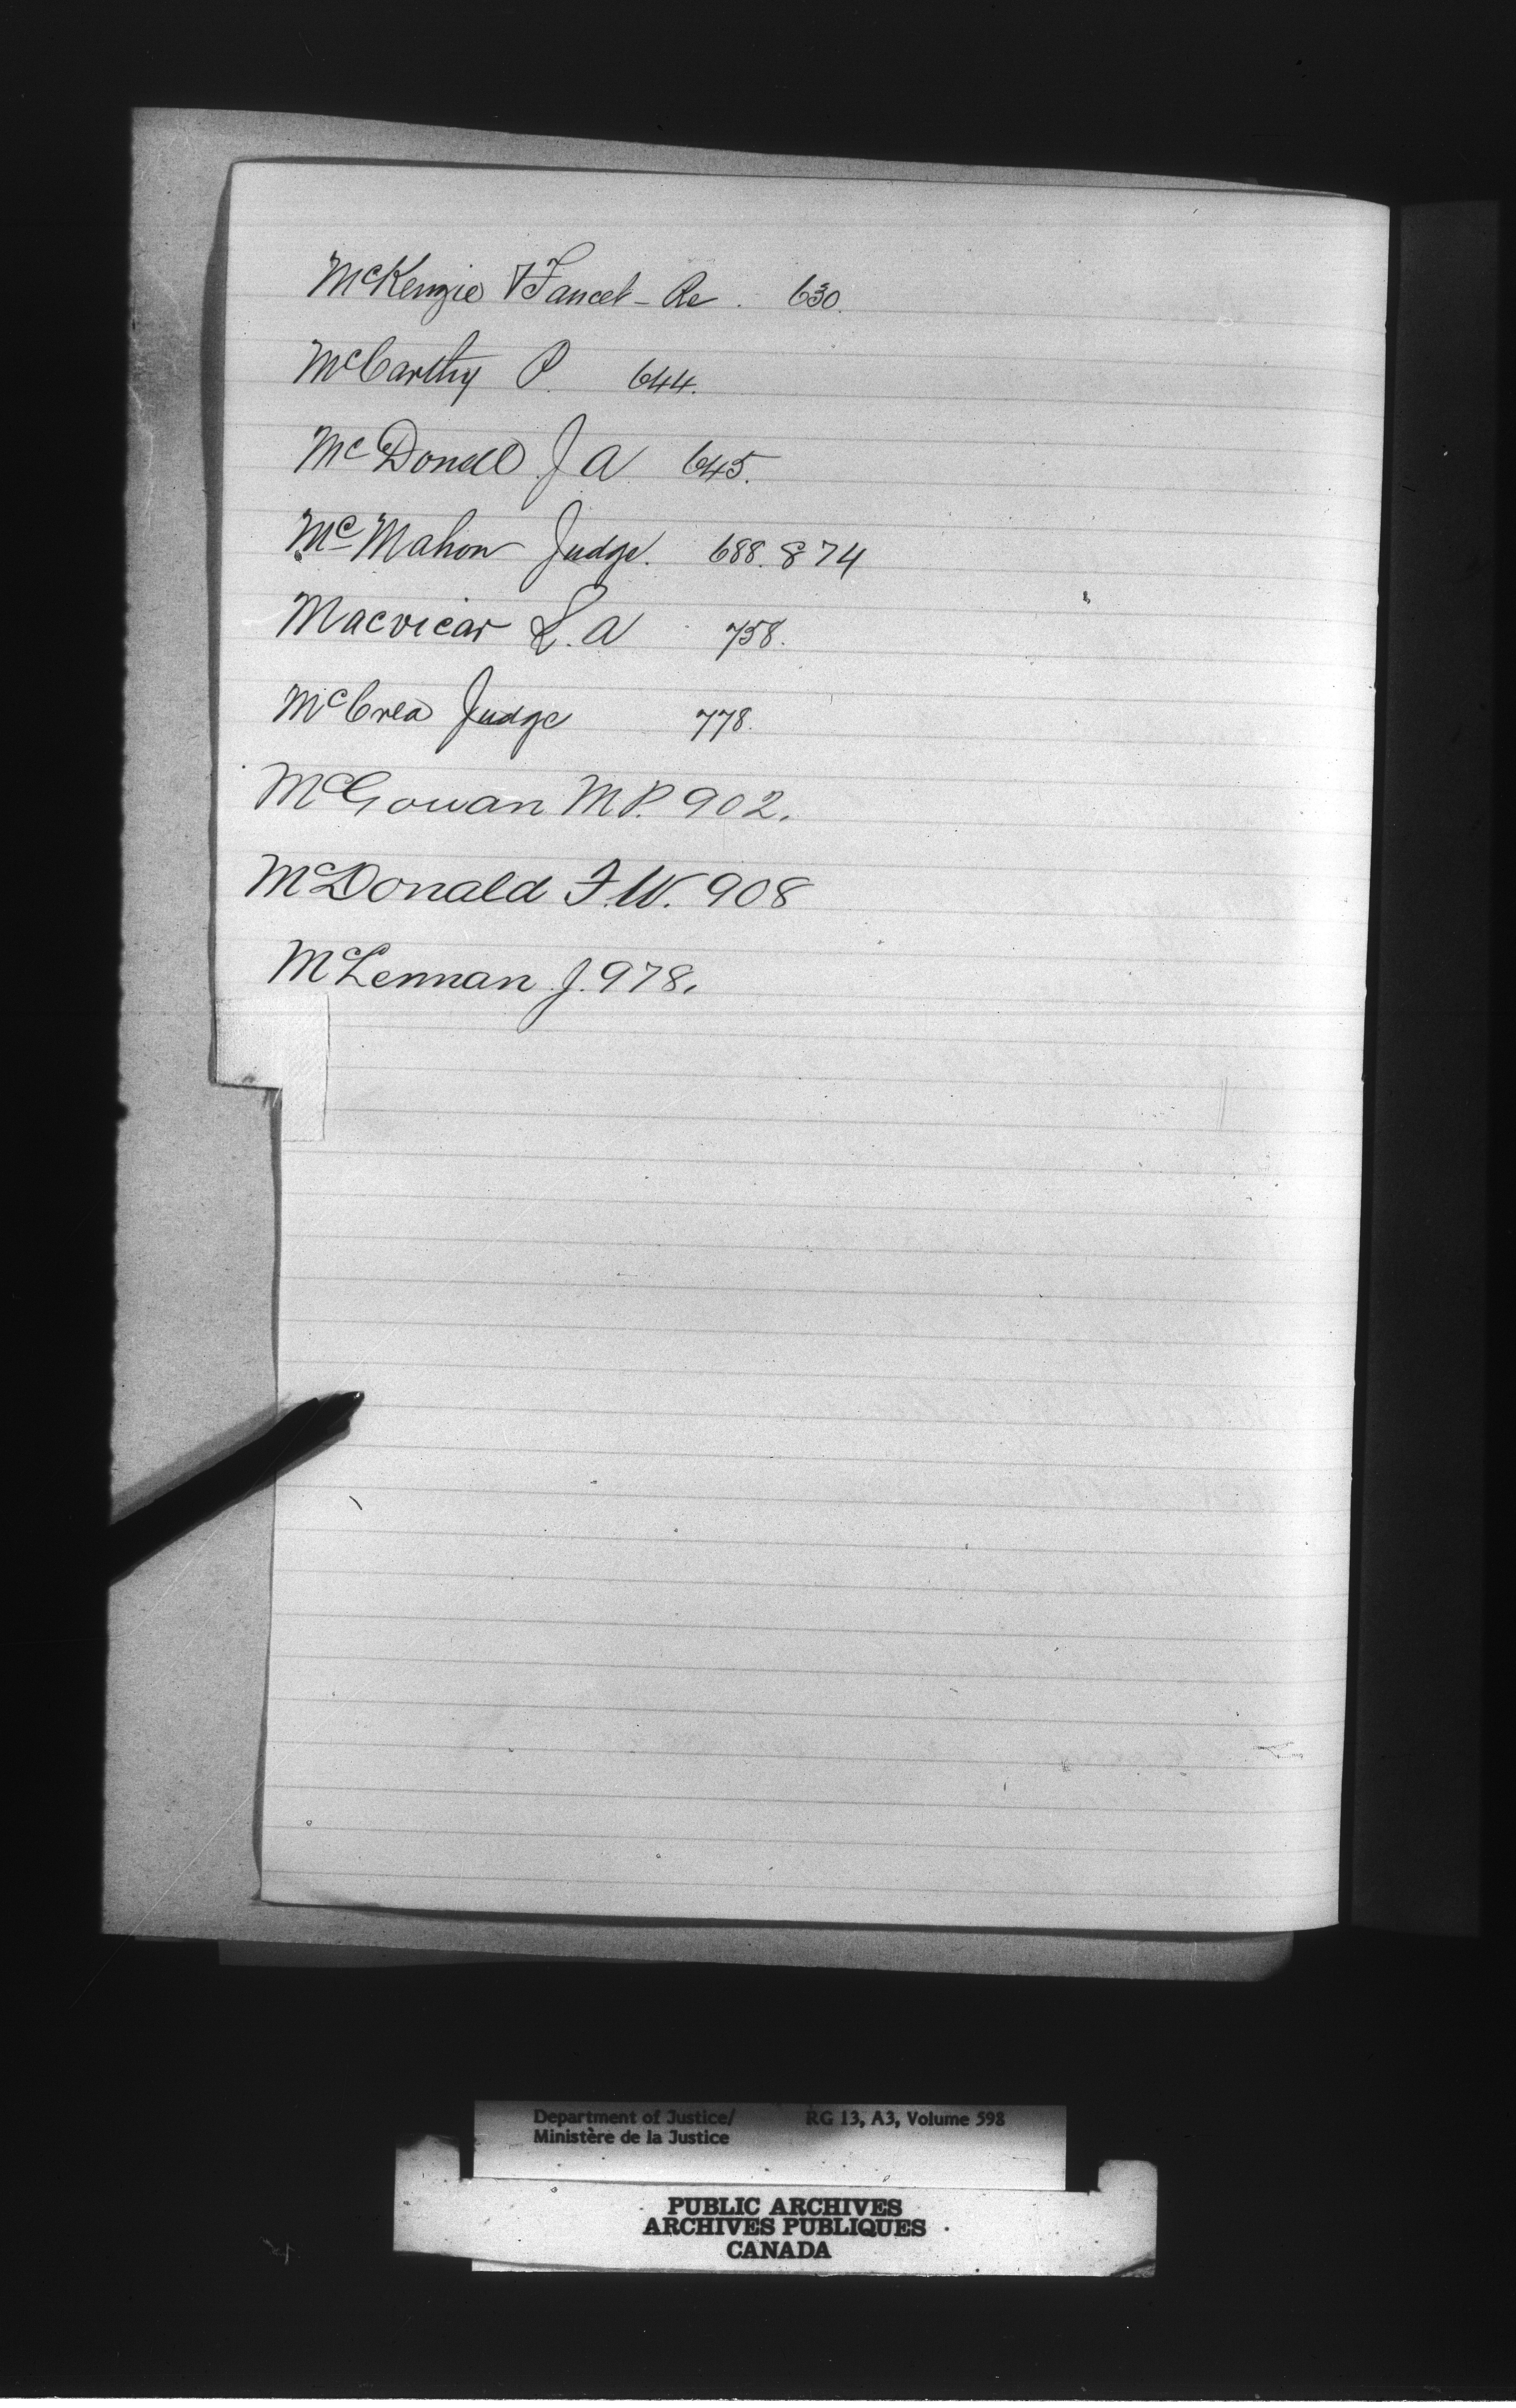 McKenzie & Fancet - Re. 630.
McCarthy P. 644.
McDonell J A 645.
McMahon Judge. 688. 874
Macvicar L. A 758.
McCrea Judge 778.
McGowan M P. 902.
McDonald F. W. 908
McLennan J. 978.
Department of Justice/ RG 13, A3, Volume 598
Ministère de la Justice
PUBLIC ARCHIVES
ARCHIVES PUBLIQUES
CANADA